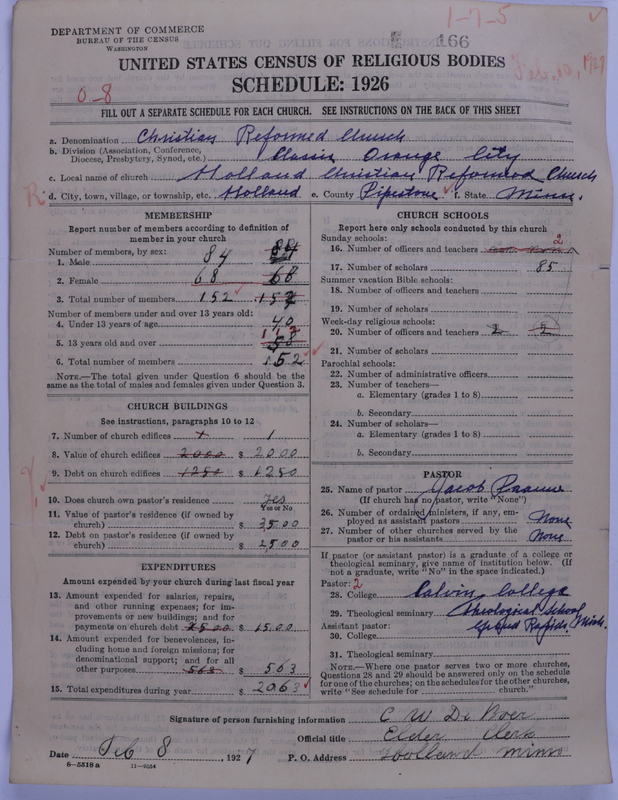 DEPARTMENT OF COMMERCE
BUREAU OF THE CENSUS
WASHINGTON
1-7-5
166
UNITED STATES CENSUS OF RELIGIOUS BODIES
Feb. 10, 1927
SCHEDULE: 1926
0-8
FILL OUT A SEPARATE SCHEDULE FOR EACH CHURCH. SEE INSTRUCTIONS ON THE BACK OF THIS SHEET
a. Denomination Christian Reformed Church
b. Division (Association, Conference, Diocese, Presbytery, Synod, etc.) Classis Orange City
c. Local name of church Holland Christian Reformed Church
R d. City, town, village, or township, etc. Holland e. County Pipestone f. State Minn.
MEMBERSHIP
Report number of members according to definition of
member in your church
Number of members, by sex:
1. Male 84 84
2. Female 68 68
3. Total number of members 152 152
Number of members under and over 13 years old:
4. Under 13 years of age 40
5. 13 years old and over 112
6. Total number of members 152
NOTE.—The total given under Question 6 should be the
same as the total of males and females given under Question 3.
CHURCH BUILDINGS
See instructions, paragraphs 10 to 12
7. Number of church edifices 1 1
8. Value of church edifices 2000 $ 2000
9. Debt on church edifices 1250 $ 1250
10. Does church own pastor's residence Yes
Yes or No
11. Value of pastor's residence (if owned by
church) $ 3500
12. Debt on pastor's residence (if owned by
church) $ 2500
EXPENDITURES
Amount expended by your church during last fiscal year
13. Amount expended for salaries, repairs,
and other running expenses; for im-
provements or new buildings; and for
payments on church debt 1500 $ 1500
14. Amount expended for benevolences, in-
cluding home and foreign missions; for
denominational support; and for all
other purposes 563 $ 563
15. Total expenditures during year $ 2063
CHURCH SCHOOLS
Report here only schools conducted by this church
Sunday schools:
16. Number of officers and teachers 2
17. Number of scholars 85
Summer vacation Bible schools:
18. Number of officers and teachers
19. Number of scholars
Week-day religious schools:
20. Number of officers and teachers 2 2
21. Number of scholars
Parochial schools:
22. Number of administrative officers
23. Number of teachers—
a. Elementary (grades 1 to 8)
b. Secondary
24. Number of scholars—
a. Elementary (grades 1 to 8)
b. Secondary
PASTOR
25. Name of pastor Jacob
(If church has no pastor, write "None")
26. Number of ordained ministers, if any, em-
ployed as assistant pastors None
27. Number of other churches served by the
pastor or his assistants None
If pastor (or assistant pastor) is a graduate of a college or
theological seminary, give name of institution below. (If
not a graduate, write "No" in the space indicated.)
Pastor: 2
28. College Calvin College
29. Theological seminary Theological School
Assistant pastor: Grand Rapids, Mich.
30. College
31. Theological seminary
NOTE.—Where one pastor serves two or more churches,
Questions 28 and 29 should be answered only on the schedule
for one of the churches; on the schedules for the other churches,
write "See schedule for church."
Signature of person furnishing information C W De Boer
Official title Elder Clerk
Date Feb 8, 1927 P. O. Address Holland Minn
6—5318a 11—9254